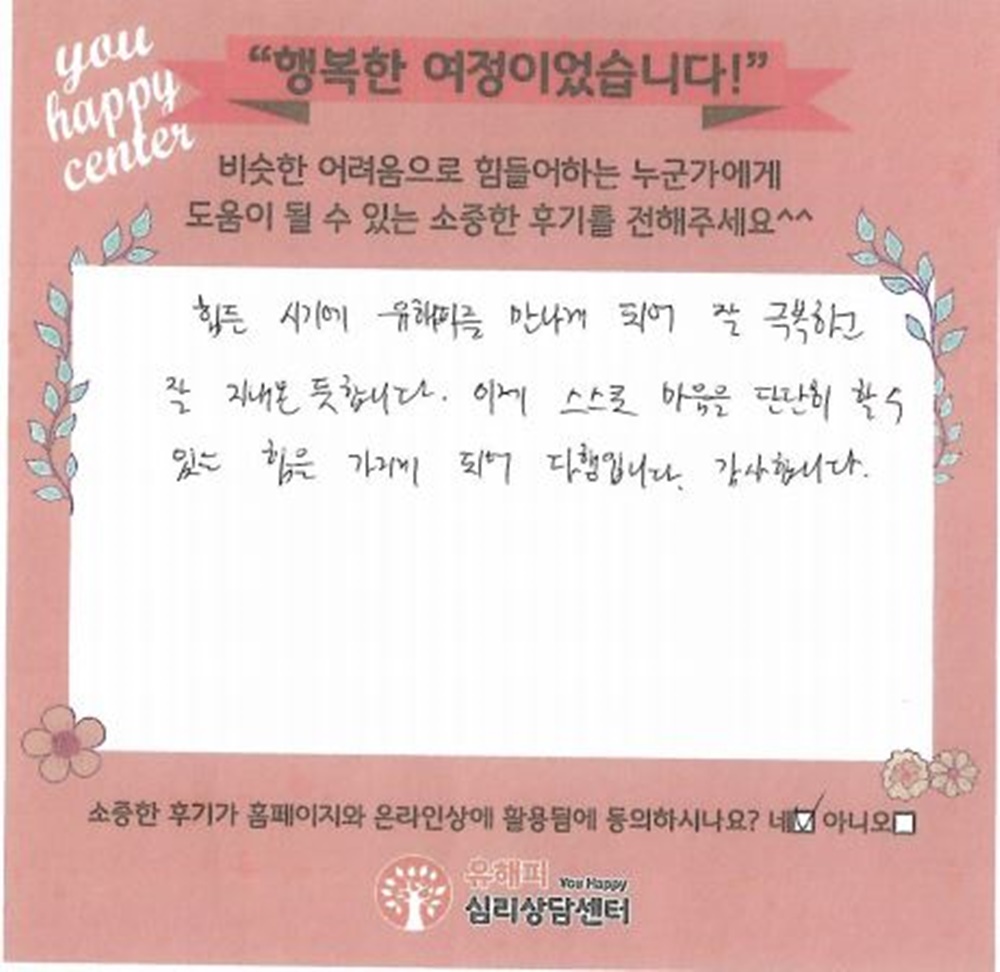 you
happy
center
“행복한 여정이었습니다!”
비슷한 어려움으로 힘들어하는 누군가에게
도움이 될 수 있는 소중한 후기를 전해주세요^^
힘든 시기에 유해피를 만나게 되어 잘 극복하고
잘 지내온 듯합니다. 이제 스스로 마음을 단단히 할 수
있는 힘을 가지게 되어 다행입니다. 감사합니다.
소중한 후기가 홈페이지와 온라인상에 활용됨에 동의하시나요? 네 아니오
유해피 You Happy
심리상담센터